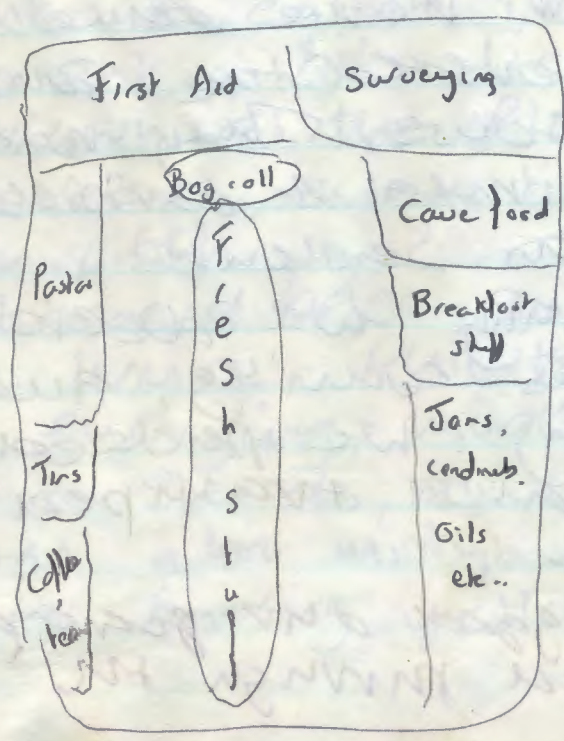 First Aid
Surveying
Bog roll
Cave food
Pasta
Fresh stuff
Breakfast
stuff
Tins
Jars,
condmnts.
Oils
etc..
Coffee,
tea